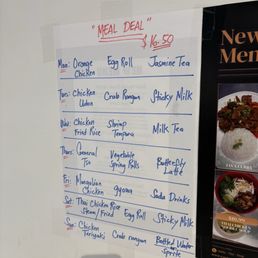 "MEAL DEAL"
$16.50
Mon: Orange Chicken Egg Roll Jasmine Tea
Tues: Chicken Udon Crab Rangun Sticky Milk
Wed: Chicken Fried Rice Shrimp Tempura Milk Tea
Thurs: General Tso Vegetable Spring Rolls Butterfly Latte
Fri: Mongolian Chicken gyoza Soda Drinks
Sat: Thai Chicken Rice Steam/Fried Egg Roll Sticky Milk
Sun: Chicken Teriyaki Crab rangun Bottled Water or Sprite
New
Men
$16.99